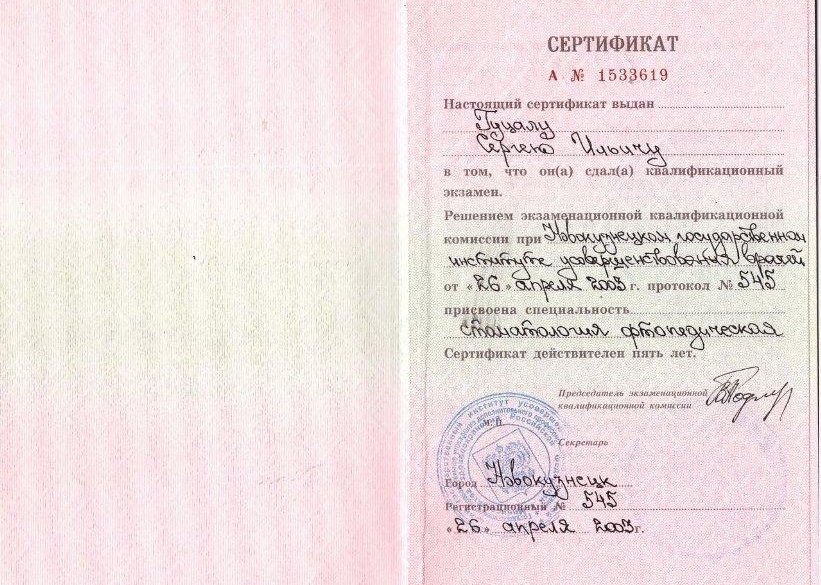 СЕРТИФИКАТ
А № 1533619
Настоящий сертификат выдан
Гуцалу
Сергею Ильичу
в том, что он(а) сдал(а) квалификационный
экзамен.
Решением экзаменационной квалификационной
комиссии при Новокузнецком государственном
институте усовершенствования врачей
от «26» апреля 2003 г. протокол № 545
присвоена специальность
стоматология ортопедическая
Сертификат действителен пять лет.
Председатель экзаменационной
квалификационной комиссии
М. П.
Секретарь
Город Новокузнецк
Регистрационный № 545
«26» апреля 2003 г.